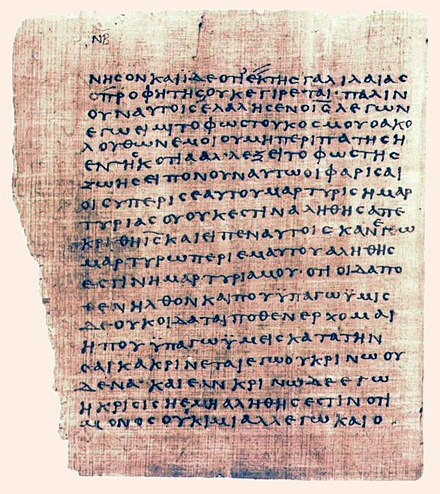 ΝΒ
ΝΗϹΟΝΚΑΙΙΔΕΟΤΙΕΚΤΗϹΓΑΛΙΛΑΙΑϹ
ΟΠΡΟΦΗΤΗϹΟΥΚΕΓΙΡΕΤΑΙ·ΠΑΛΙΝ
ΟΥΝΑΥΤΟΙϹΕΛΑΛΗϹΕΝΟΙ̅Ϲ̅ΛΕΓΩΝ
ΕΓΩΕΙΜΙΤΟΦΩϹΤΟΥΚΟϹΜΟΥΟΑΚΟ
ΛΟΥΘΩΝΕΜΟΙΟΥΜΗΠΕΡΙΠΑΤΗϹΗ
ΕΝΤΗϹΚΟΤΙΑΑΛΛΕΞΕΙΤΟΦΩϹΤΗϹ
ΖΩΗϹΕΙΠΟΝΟΥΝΑΥΤΩΟΙΦΑΡΙϹΑΙ
ΟΙϹΥΠΕΡΙϹΕΑΥΤΟΥΜΑΡΤΥΡΙϹΗΜΑΡ
ΤΥΡΙΑϹΟΥΟΥΚΕϹΤΙΝΑΛΗΘΗϹΑΠΕ
ΚΡΙΘΗΙ̅Ϲ̅ΚΑΙΕΙΠΕΝΑΥΤΟΙϹΚΑΝΕΓΩ
ΜΑΡΤΥΡΩΠΕΡΙΕΜΑΥΤΟΥΑΛΗΘΗϹ
ΕϹΤΙΝΗΜΑΡΤΥΡΙΑΜΟΥ·ΟΤΙΟΙΔΑΠΟ
ΘΕΝΗΛΘΟΝΚΑΙΠΟΥΫΠΑΓΩΫΜΙϹ
ΔΕΟΥΚΟΙΔΑΤΑΙΠΟΘΕΝΕΡΧΟΜΑΙ
ΗΠΟΥΫΠΑΓΩΫΜΕΙϹΚΑΤΑΤΗΝ
ϹΑΡΚΑΚΡΙΝΕΤΑΙΕΓΩΟΥΚΡΙΝΩΟΥ
ΔΕΝΑ·ΚΑΙΕΑΝΚΡΙΝΩΔΕΕΓΩ
ΗΚΡΙϹΙϹΗΕΜΗΑΛΗΘΗϹΕϹΤΙΝΟΤΙ
ΜΟΝΟϹΟΥΚΙΜΙΑΛΛΕΓΩΚΑΙΟ·